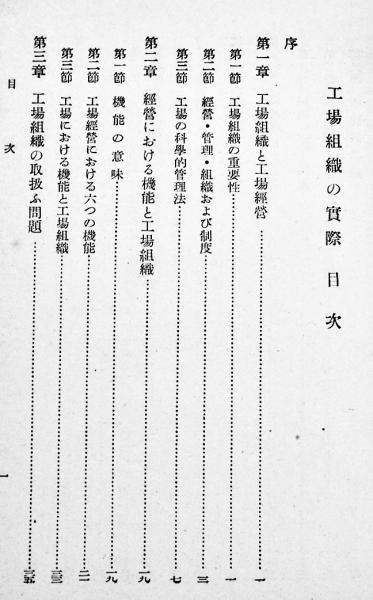 工場組織の實際 目次
序
第一章 工場組織と工場經營……一
第一節 工場組織の重要性……一
第二節 經營・管理・組織および制度……三
第三節 工場の科學的管理法……七
第二章 經營における機能と工場組織……一九
第一節 機能の意味……一九
第二節 工場經營における六つの機能……二一
第三節 工場における機能と工場組織……三三
第三章 工場組織の取扱ふ問題……三五
目次
一